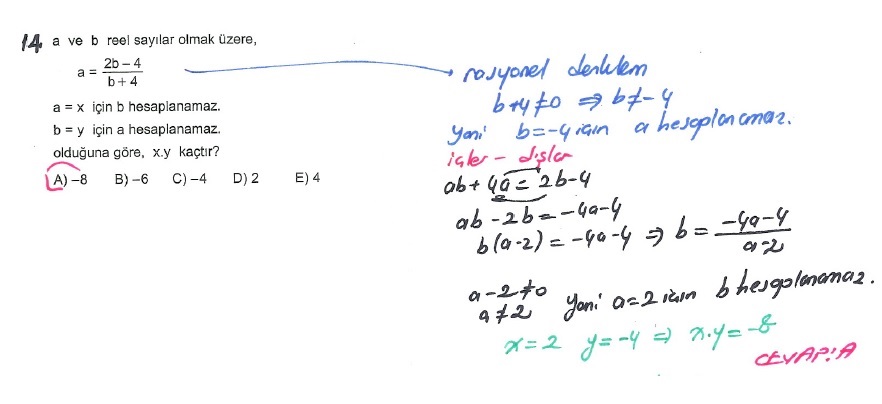 14. a ve b reel sayılar olmak üzere,
a = (2b – 4)/(b + 4)
a = x için b hesaplanamaz.
b = y için a hesaplanamaz.
olduğuna göre, x.y kaçtır?
A) –8 B) –6 C) –4 D) 2 E) 4
rasyonel denklem
b+4≠0 ⇒ b≠-4
Yani b=-4 için a hesaplanamaz.
içler - dışlar
ab + 4a = 2b-4
ab - 2b = -4a-4
b(a-2) = -4a-4 ⇒ b = (-4a-4)/(a-2)
a-2≠0
a≠2 yani a=2 için b hesaplanamaz.
x=2 y=-4 ⇒ x.y=-8
CEVAP:A